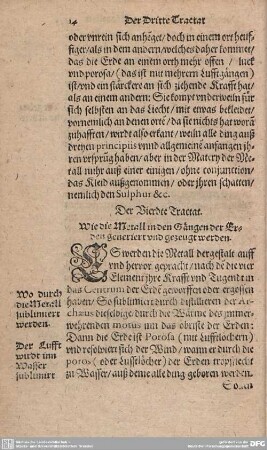 14 Der Dritte Tractat
oder vnrein sich anhöget/ doch in einem ort heuf-
figer/ als in dem andern/ welches daher kommet/
das die Erde an einem orth mehr offen / luck
vnd porosa / (das ist mit mehrern Lufftgängen)
ist/ vnd ein stärckere an sich ziehende Krafft hat/
als an einem andern: Sie kompt vnderweiln für
sich selbsten an das Liecht / mit etwas bekleidet/
vornemlich an denen orten/ da sie nichts hat woran
zuhafften / werdt also erkant / weiln alle ding auß
dreyen principiis vnnd allgemeine anfangen jh-
ren vrsprūg haben/ aber in der Matery der Me-
tall nuhr auß einer einigen / ohne conjunction/
das Kleid außgenommen / oder jhren schatten/
nemlich den Sulphur &c.
Der Vierdte Tractat.
Wie die Metall in den Gängen der Er-
den generiert vnd gezeugt werden.
ES werden die Metall dergestalt auff
vnd hervor gepracht / nach dē die vier
Element jhre Krafft vnd Tugent an
das Centrum der Erde geworffen oder ergossen
haben/ So sublimirt durch distillieren der Ar-
chæus dieselbige durch die Wärme des immer-
wehrenden motus inn das obriste der Erden:
Dann die Erde ist Porosa (mit Lufftlöchern)
vnd resolviert sich der Wind / wann er durch die
poros (oder Lufftlöcher) der Erden
zu Wasser / auß deme alle ding geboren werden.
Wo durch
die Metall
sublimiert
werden.
Der Lufft
wirdt inn
Wasser